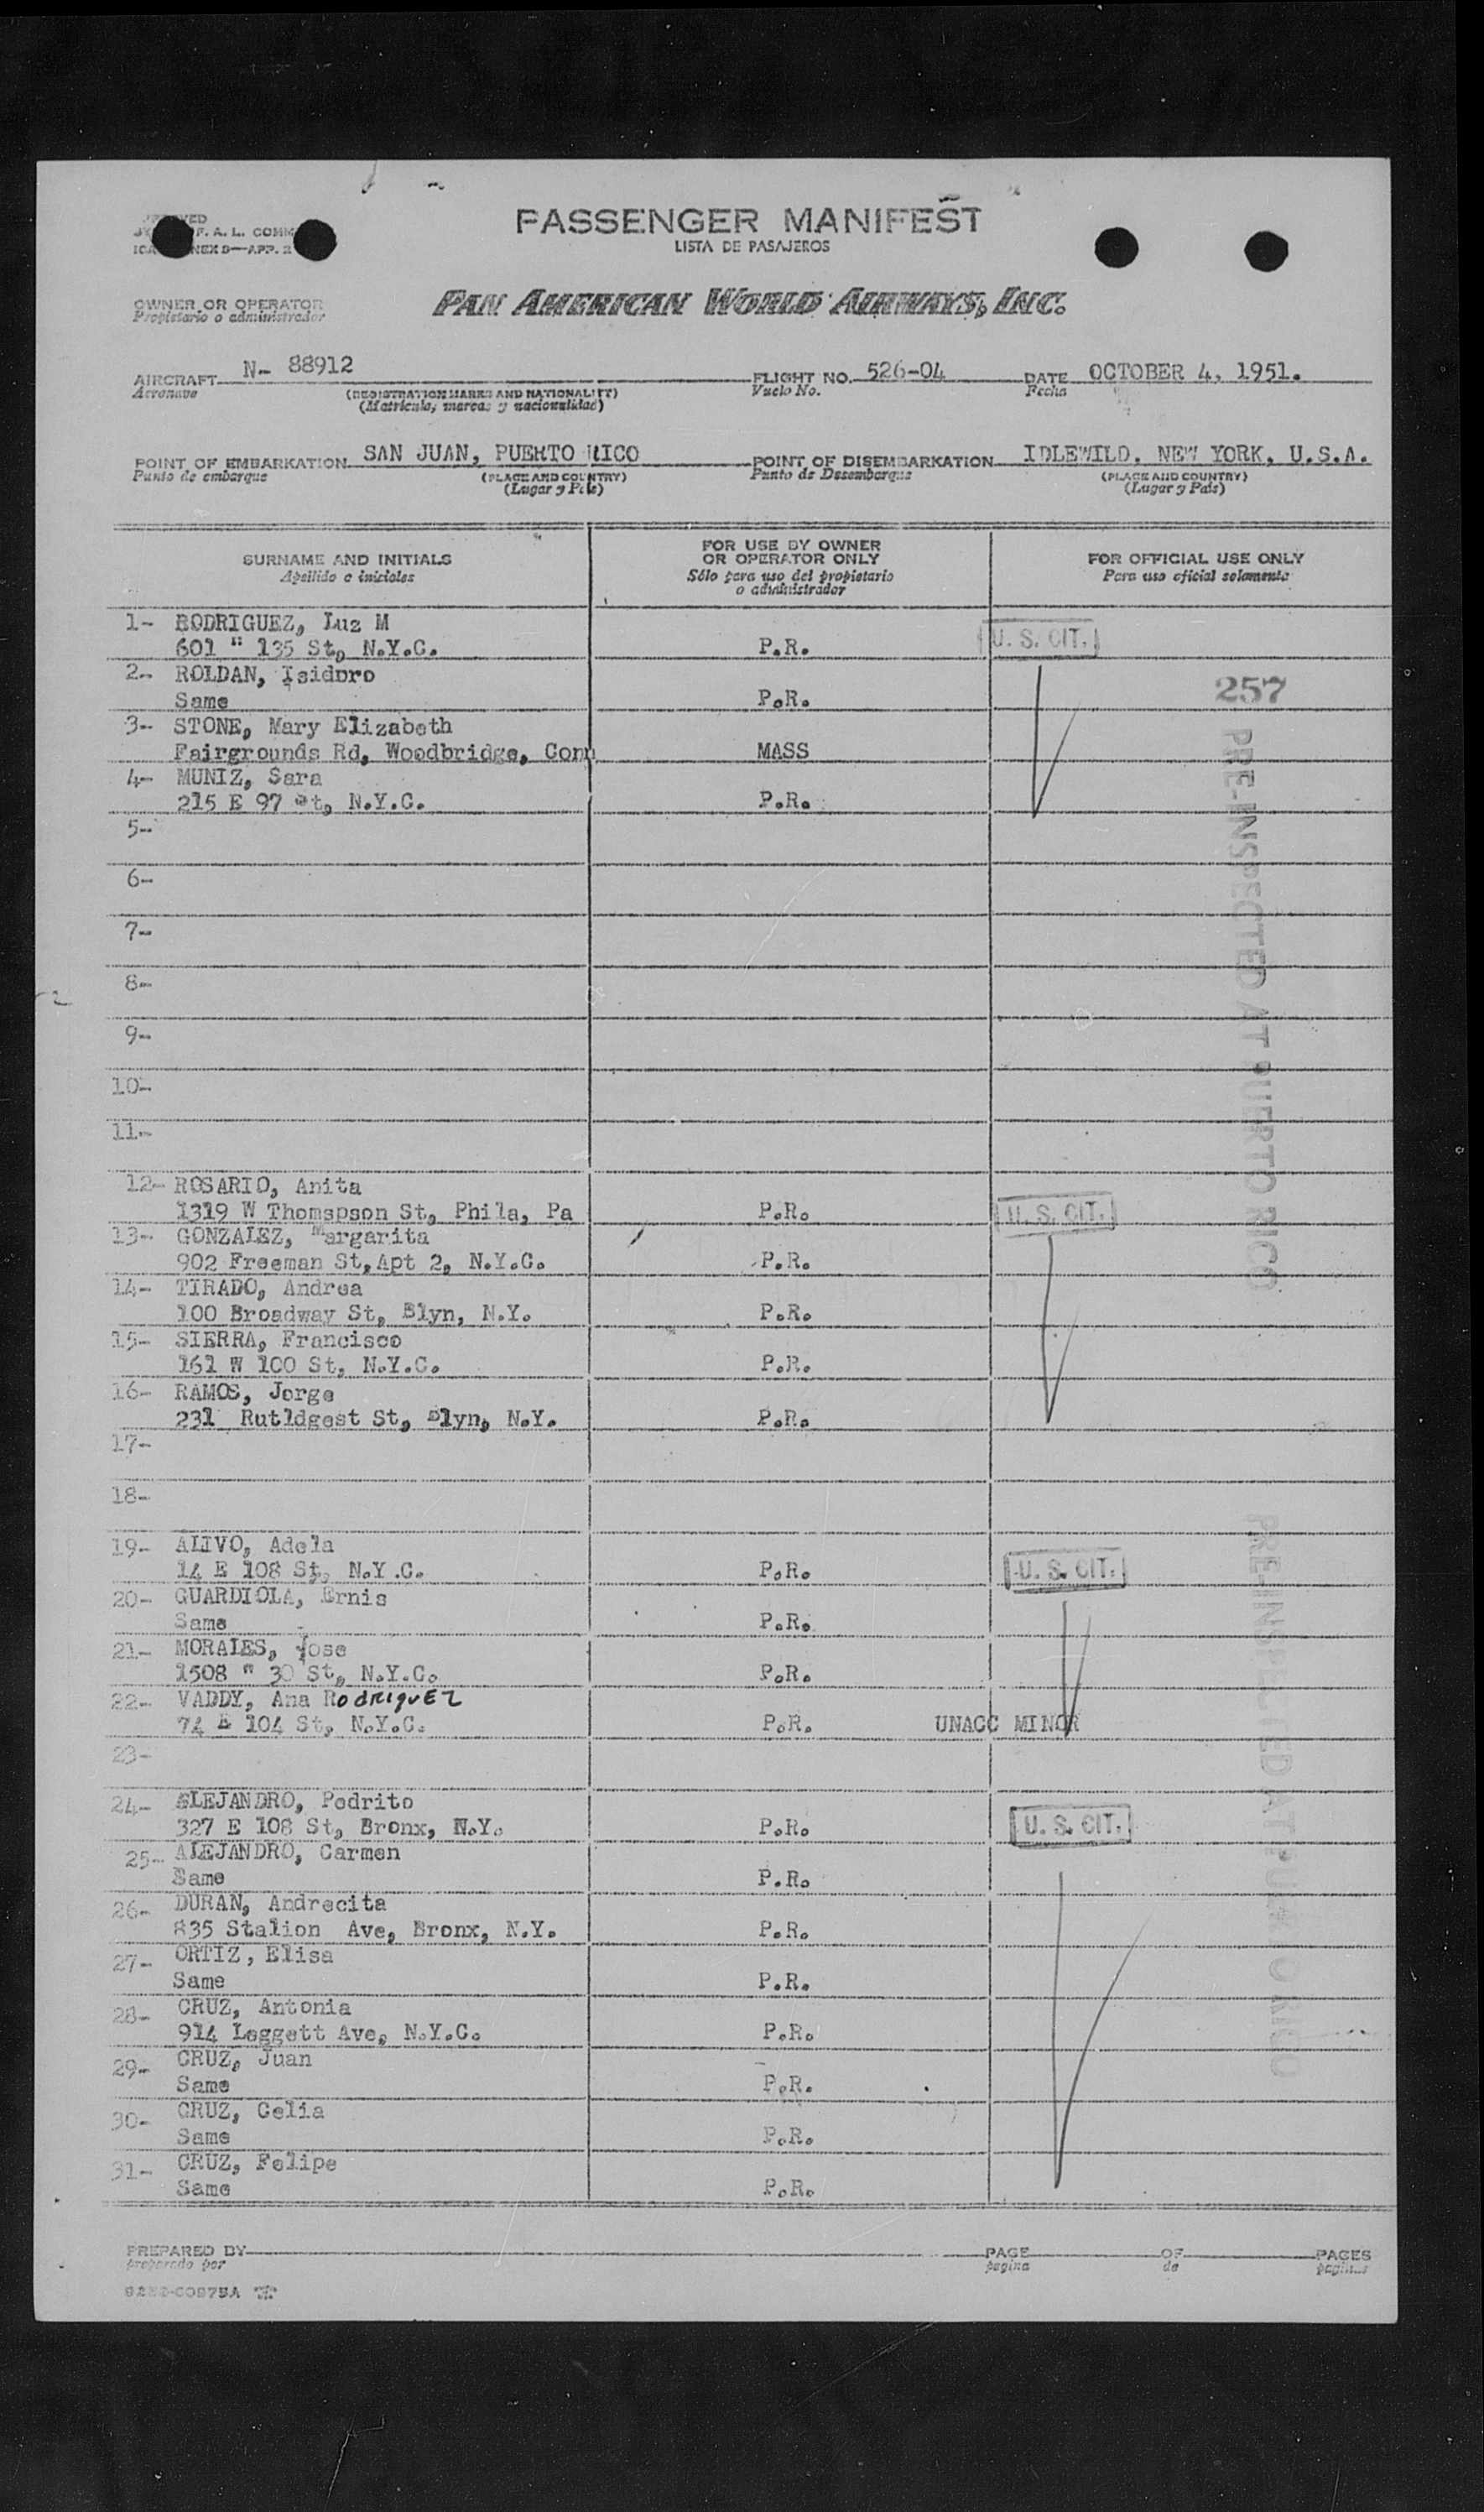 PASSENGER MANIFEST
LISTA DE PASAJEROS
F. A. L. COMM
NEX 9—APP. 2
OWNER OR OPERATOR
Propietario o administrador
PAN AMERICAN WORLD AIRWAYS, INC.
AIRCRAFT N- 88912 FLIGHT NO. 526-04 DATE OCTOBER 4, 1951.
Aeronave (REGISTRATION MARKS AND NATIONALITY) Vuelo No. Fecha
(Matricula, marcas y nacionalidad)
POINT OF EMBARKATION SAN JUAN, PUERTO RICO POINT OF DISEMBARKATION IDLEWILD, NEW YORK, U.S.A.
Punto de embarque (PLACE AND COUNTRY) Punto de Desembarque (PLACE AND COUNTRY)
(Lugar y País) (Lugar y País)
SURNAME AND INITIALS FOR USE BY OWNER OR OPERATOR ONLY FOR OFFICIAL USE ONLY
Apellido e iniciales Sólo para uso del propietario o administrador Para uso oficial solamente
1- RODRIGUEZ, Luz M
601 " 135 St, N.Y.C. P.R. U. S. CIT.
2- ROLDAN, Isidoro
Same P.R. 257
3- STONE, Mary Elizabeth
Fairgrounds Rd, Woodbridge, Conn MASS
4- MUNIZ, Sara
215 E 97 St, N.Y.C. P.R.
5-
6-
7-
8-
9-
10-
11-
PRE-INSPECTED AT PUERTO RICO
12- ROSARIO, Anita
1319 W Thomspson St, Phila, Pa P.R. U. S. CIT.
13- GONZALEZ, Margarita
902 Freeman St, Apt 2, N.Y.C. P.R.
14- TIRADO, Andrea
100 Broadway St, Blyn, N.Y. P.R.
15- SIERRA, Francisco
161 W 100 St, N.Y.C. P.R.
16- RAMOS, Jorge
231 Rutldgest St, Blyn, N.Y. P.R.
17-
18-
19- ALIVO, Adela
14 E 108 St, N.Y.C. P.R. U. S. CIT.
20- GUARDIOLA, Ernis
Same P.R.
21- MORALES, Jose
1508 " 30 St, N.Y.C. P.R.
22- VADDY, Ana RodriguEz
74 E 104 St, N.Y.C. P.R. UNACC MINOR
23-
PRE-INSPECTED AT PUERTO RICO
24- ALEJANDRO, Pedrito
327 E 108 St, Bronx, N.Y. P.R. U. S. CIT.
25- ALEJANDRO, Carmen
Same P.R.
26- DURAN, Andrecita
835 Stalion Ave, Bronx, N.Y. P.R.
27- ORTIZ, Elisa
Same P.R.
28- CRUZ, Antonia
914 Leggett Ave, N.Y.C. P.R.
29- CRUZ, Juan
Same P.R.
30- CRUZ, Celia
Same P.R.
31- CRUZ, Felipe
Same P.R.
PREPARED BY PAGE OF PAGES
preparado por pagina de paginas